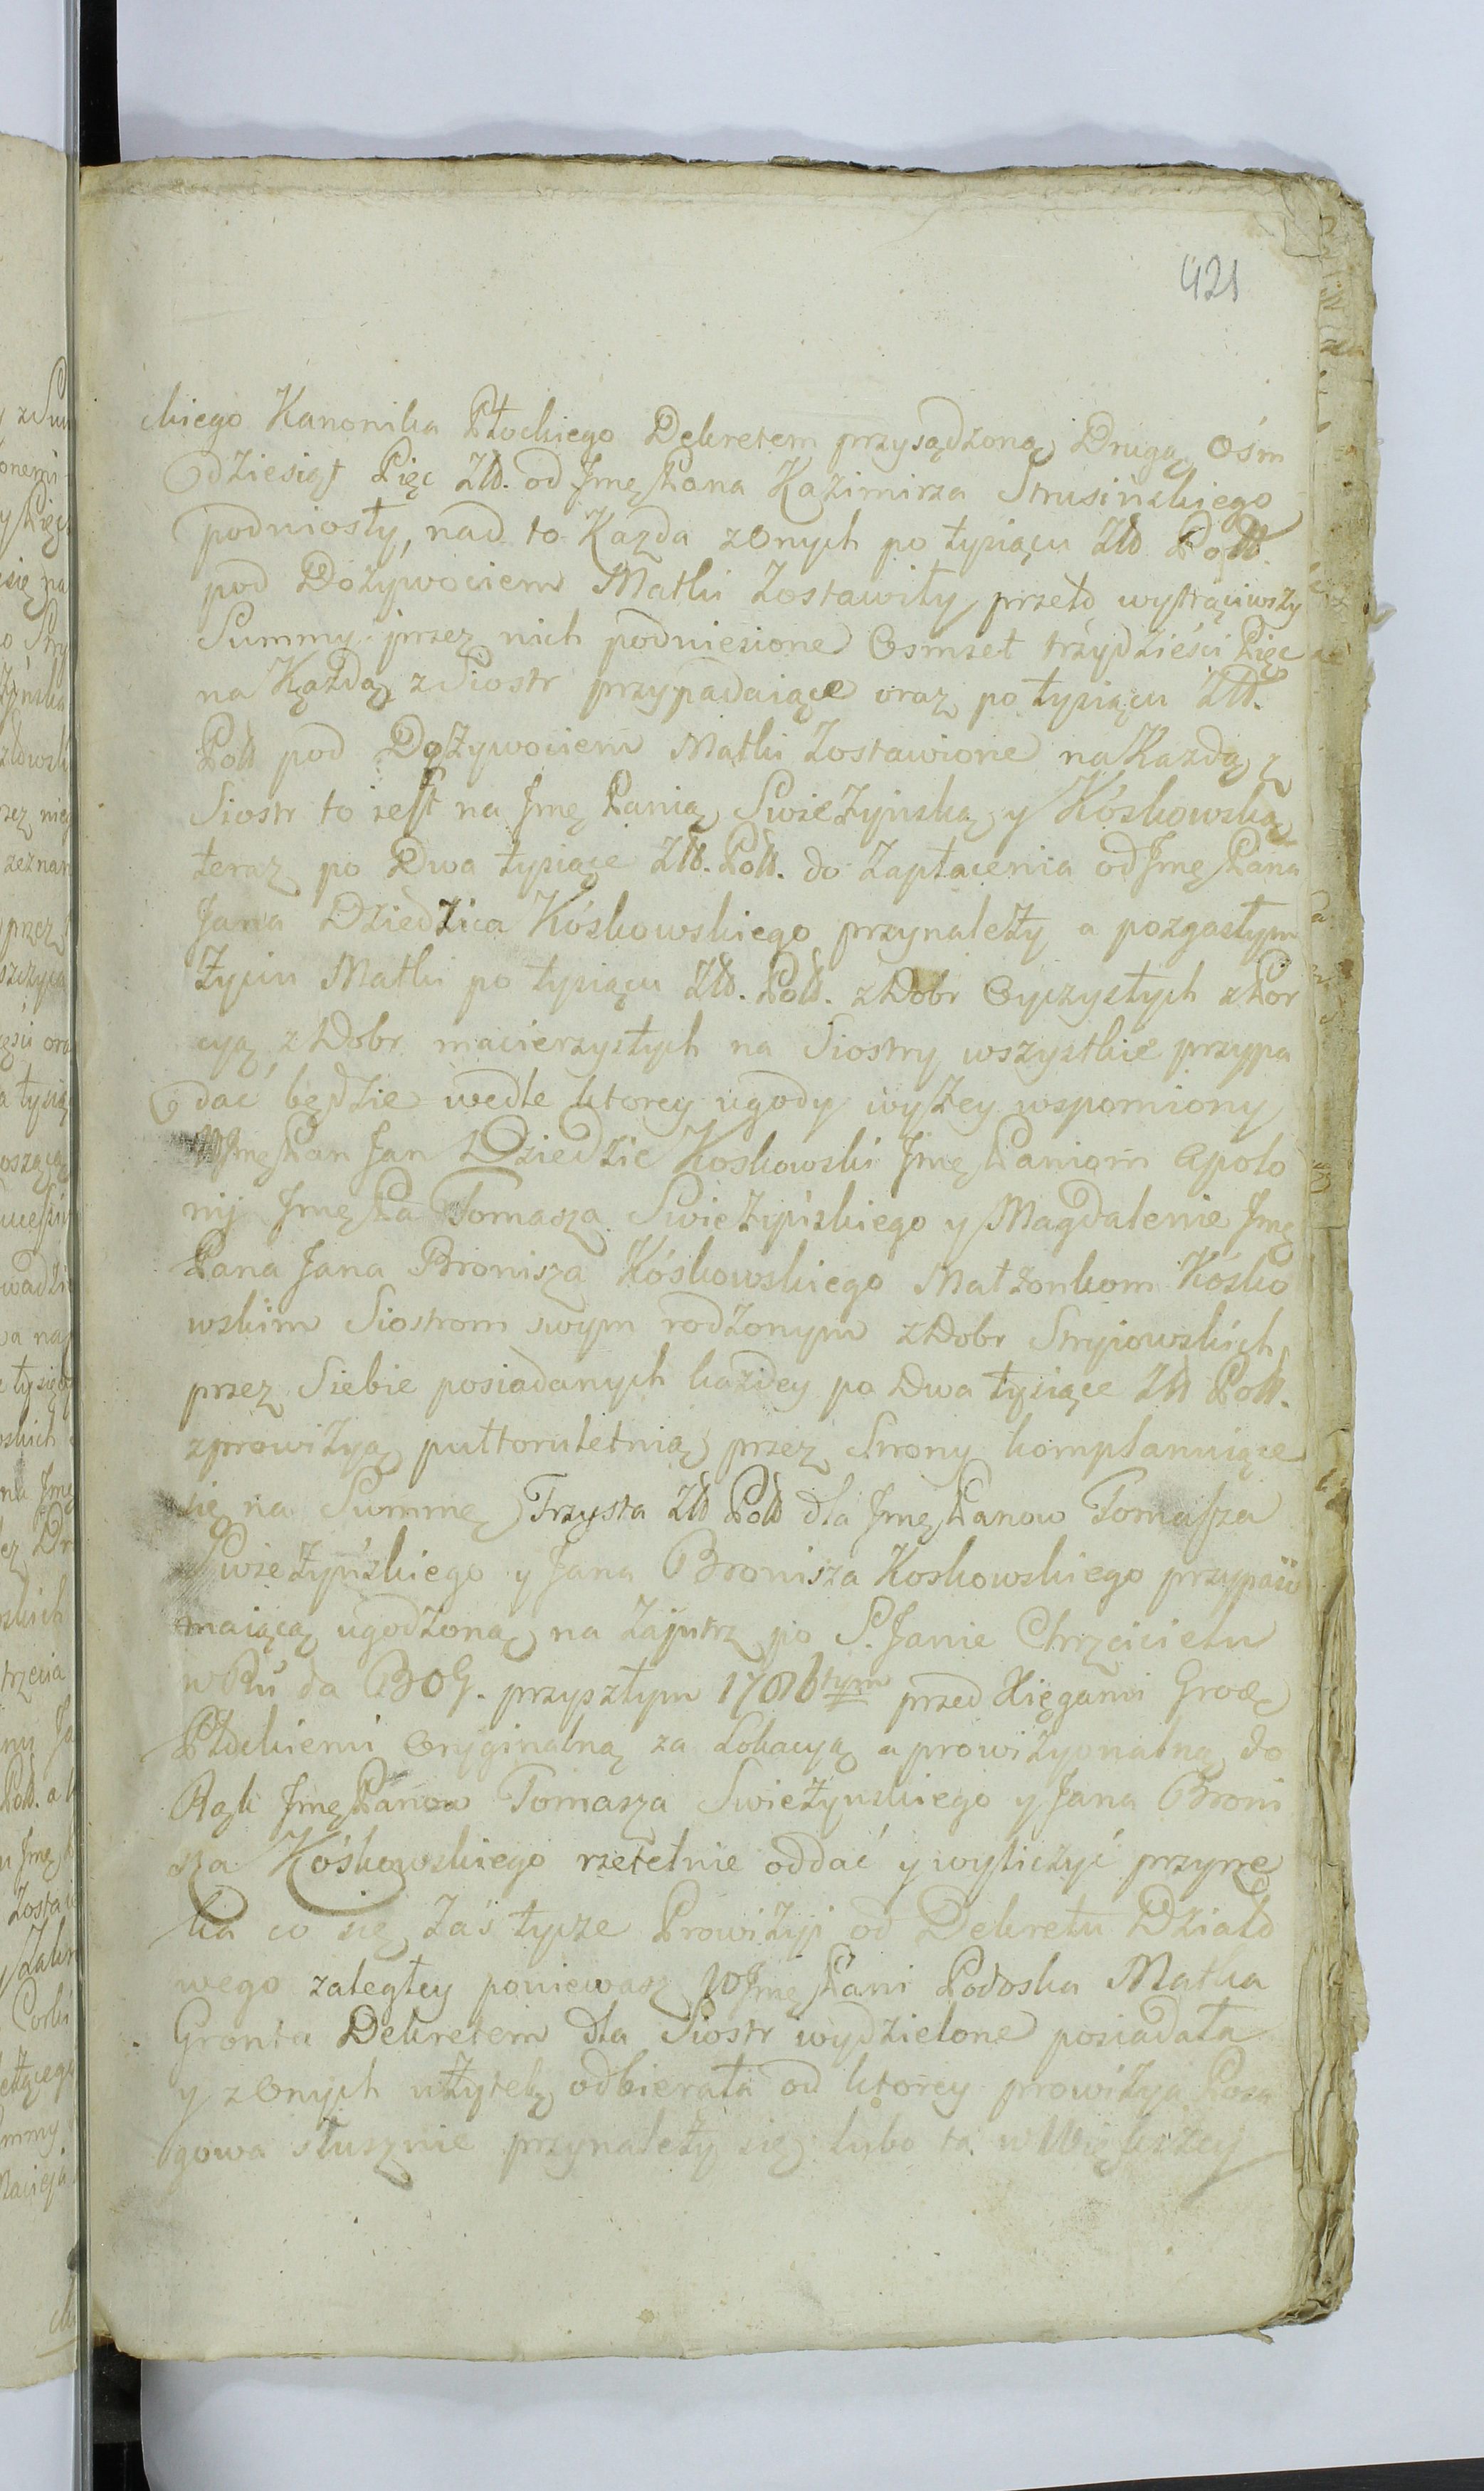 421
ckiego Kanonika Płockiego Dekretem przysądzoną Drugą Ośm
dziesiąt Pięc Złł. od Jmę Pana Kazimirza Strusinskiego
podniosły, nad to Kazda zOnych po tysiącu Złł Poll.
pod Dozywociem Matki Zostawiły przeto wystrąciwszy
Summy przez nich podniesione Osmset trzydzieści Pięc
na Każdą zSiostr przypadaiące oraz po tysiącu Złł.
Poll pod Dożywociem Matki Zostawione na Kazdą z
Siostr to iest na Jmę Panią Swieżynską y Kóskowską
teraz po Dwa tysiące Złł. Poll. do Zapłacenia od Jmę Pana
Jana Dziedzica Kóskowskiego przynależy a pozgasłym
Zyciu Matki po tysiącu Złł. Poll. z Dobr Oyczystych z Por
cyą z Dobr macierzystych na Siostry wszystkie przypa
dać będzie wedle ktorey ugody wyżey wspomniony
WJmę Pan Jan Dziedzic Koskowski Jmę Paniom Apolo
nij Jmę Pa Tomasza Swieżyńskiego y Magdalenie Jmę
Pana Jana Bronisza Kóskowskiego Małzonkom Kósko
wskim Siostrom swym rodzonym z Dobr Stryiowskich
przez Siebie posiadanych kazdey po Dwa tysiące Złł Poll.
zprowizyą pułtoruletnią przez Strony komplanuiące
się na Summę Trzysta Złł Poll dla Jmę Panow Tomasza
Swieżyńskiego y Jana Bronisza Koskowskiego przypaśc
maiącą ugodzoną na Zajutrz po S. Janie Chrzcicielu
w Ru da BOG. przyszłym 1786tym przed Xięgami Grodz
Płockiemi Oryginalną za Lokacyą a prowizyonalną do
Rąk Jmę Panow Tomasza Swieżynskiego y Jana Broni
sza Kóskowskiego rzetelnie oddać y wyliczyć przyrze
ka co się zaś tycze Prowizyi od Dekretu Działo
wego zaległey poniewasz WJmę Pani Podoska Matka
Gronta Dekretem dla Siostr wydzielone posiadała
y zOnych użytek odbierała od ktorey prowizya Posa
gowa słusznie przynależy się lubo ta w Większey